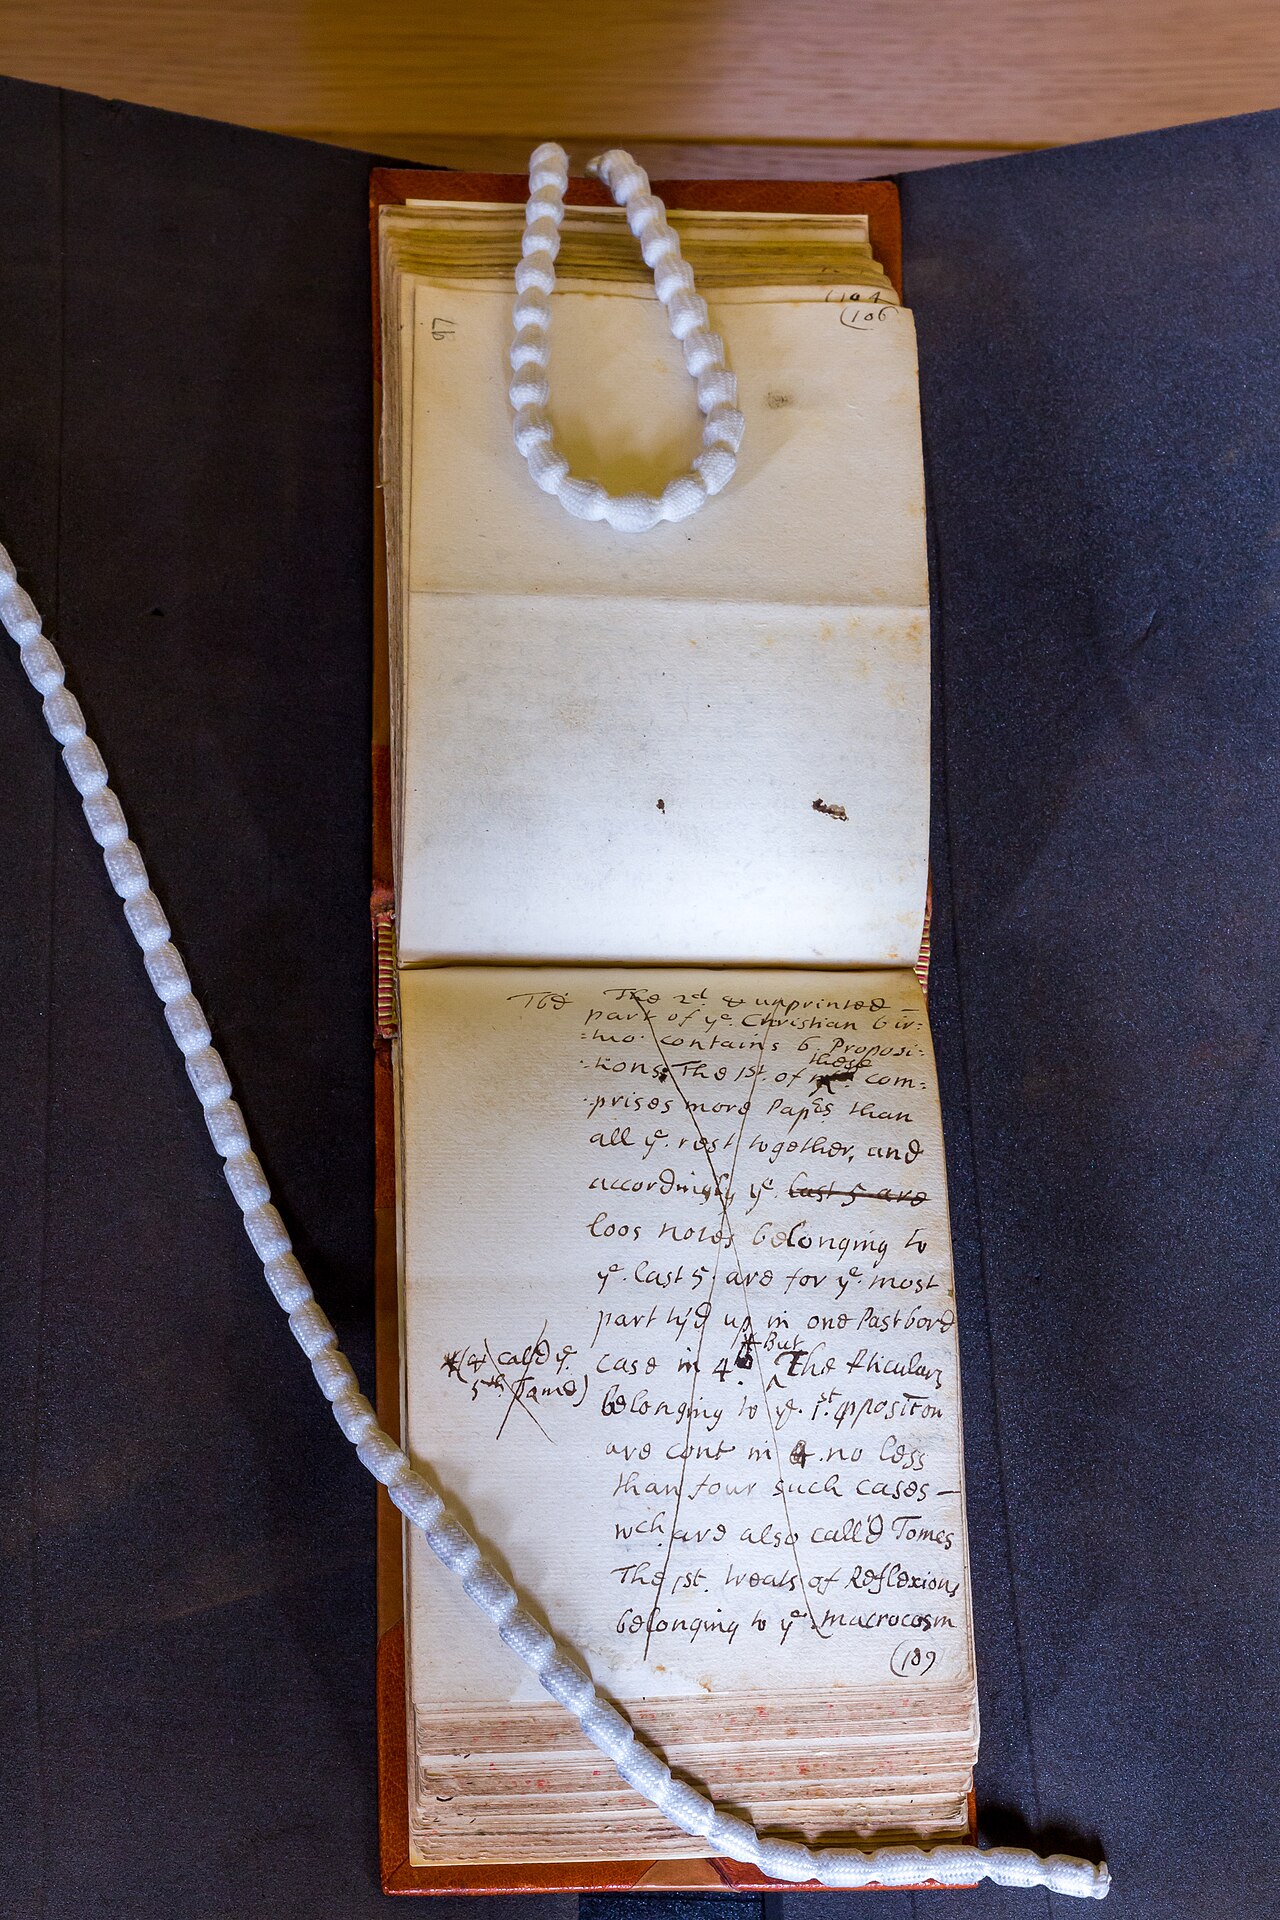 (104
(106
97
The 2d. & unprinted
part of ye. Christian Vir:
:tuo contains 6 Proposi:
these
:tions. The 1st. of com:
:prises more Papers than
all ye. rest together, and
accordingly ye. last 5 are
loos notes belonging to
ye. last 5 are for ye. most
part ty'd up in one Pastbord
But
case in 4 The
*(& call'd ye.
5th Tome)
belonging to ye. 1st.
are cont in 4 no less
than four such cases –
wch. are also call'd Tomes
The 1st. treats of Reflexions
belonging to ye. macrocosm
(109